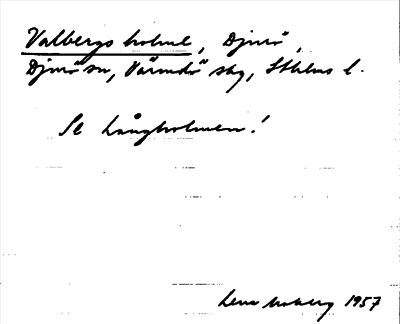 Valbergs holme, Djurö,
Djurö sn, Värmdö skg, Sthlms l.
Se Långholmen!
Lena Moberg 1957